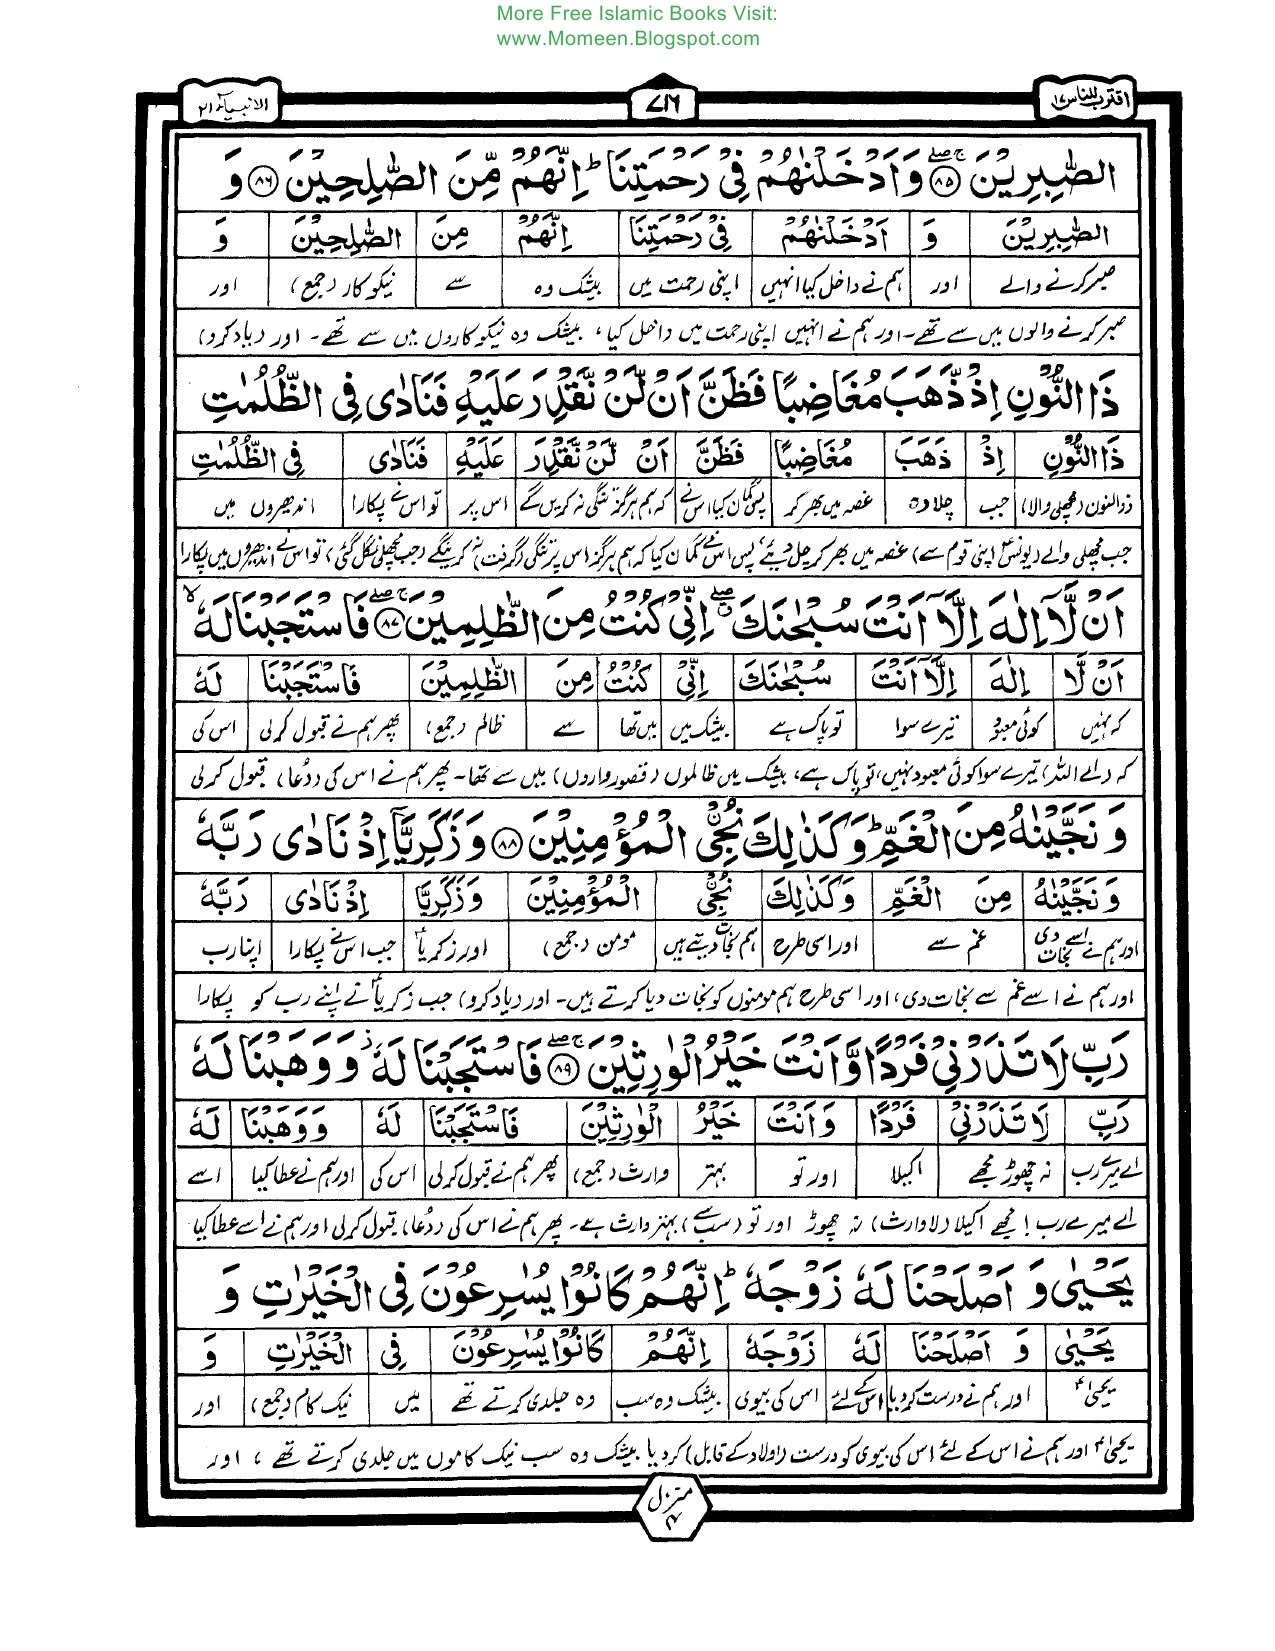 More Free Islamic Books Visit:
www.Momeen.Blogspot.com
اقترب للناس ١٧
٧١٦
الانبیاء ٢١
الصّٰبِرِیْنَ ﴿٨٥﴾ وَاَدْخَلْنٰهُمْ فِیْ رَحْمَتِنَا ؕ اِنَّهُمْ مِّنَ الصّٰلِحِیْنَ ﴿٨٦﴾ وَ
الصّٰبِرِیْنَ وَ اَدْخَلْنٰهُمْ فِیْ رَحْمَتِنَا اِنَّهُمْ مِنَ الصّٰلِحِیْنَ وَ
صبر کرنے والے اور ہم نے داخل کیا انہیں اپنی رحمت میں بیشک وہ سے نیکوکار (جمع) اور
صبر کرنے والوں میں سے تھے۔ اور ہم نے انہیں اپنی رحمت میں داخل کیا، بیشک وہ نیکوکاروں میں سے تھے۔ اور (یاد کرو)
ذَا النُّوْنِ اِذْ ذَّهَبَ مُغَاضِبًا فَظَنَّ اَنْ لَّنْ نَّقْدِرَ عَلَیْهِ فَنَادٰی فِی الظُّلُمٰتِ
ذَا النُّوْنِ اِذْ ذَهَبَ مُغَاضِبًا فَظَنَّ اَنْ لَنْ نَقْدِرَ عَلَیْهِ فَنَادٰی فِی الظُّلُمٰتِ
ذوالنون (مچھلی والا) جب چلا وہ غصہ میں بھر کر پس گمان کیا اس نے کہ ہم ہرگز تنگی نہ کریں گے اس پر تو اس نے پکارا اندھیروں میں
جب مچھلی والے (یونسؑ اپنی قوم سے) غصہ میں بھر کر چل دیئے، پس اس نے گمان کیا کہ ہم ہرگز اس پر تنگی (گرفت) نہ کرینگے (جب مچھلی نگل گئی) تو اس نے اندھیروں میں پکارا
اَنْ لَّاۤ اِلٰهَ اِلَّاۤ اَنْتَ سُبْحٰنَكَ ۖ اِنِّیْ كُنْتُ مِنَ الظّٰلِمِیْنَ ﴿٨٧﴾ فَاسْتَجَبْنَا لَهٗ ۙ
اَنْ لَّا اِلٰهَ اِلَّاۤ اَنْتَ سُبْحٰنَكَ اِنِّیْ كُنْتُ مِنَ الظّٰلِمِیْنَ فَاسْتَجَبْنَا لَهٗ
کہ نہیں کوئی معبود تیرے سوا تو پاک ہے بیشک میں میں تھا سے ظالم (جمع) پھر ہم نے قبول کر لی اس کی
کہ (اے اللہ) تیرے سوا کوئی معبود نہیں، تو پاک ہے، بیشک میں ظالموں (قصور واروں) میں سے تھا۔ پھر ہم نے اس کی (دُعا) قبول کر لی
وَ نَجَّیْنٰهُ مِنَ الْغَمِّ ؕ وَكَذٰلِكَ نُـْۨجِی الْمُؤْمِنِیْنَ ﴿٨٨﴾ وَزَكَرِیَّاۤ اِذْ نَادٰی رَبَّهٗ
وَ نَجَّیْنٰهُ مِنَ الْغَمِّ وَكَذٰلِكَ نُـْۨجِی الْمُؤْمِنِیْنَ وَزَكَرِیَّا اِذْ نَادٰی رَبَّهٗ
اور ہم نے اسے نجات دی غم سے اور اسی طرح ہم نجات دیتے ہیں مومن (جمع) اور زکریاؑ جب اس نے پکارا اپنا رب
اور ہم نے اسے غم سے نجات دی، اور اسی طرح ہم مومنوں کو نجات دیا کرتے ہیں۔ اور (یاد کرو) جب زکریاؑ نے اپنے رب کو پکارا
رَبِّ لَا تَذَرْنِیْ فَرْدًا وَّاَنْتَ خَیْرُ الْوٰرِثِیْنَ ﴿٨٩﴾ فَاسْتَجَبْنَا لَهٗ ؗ وَوَهَبْنَا لَهٗ
رَبِّ لَا تَذَرْنِیْ فَرْدًا وَاَنْتَ خَیْرُ الْوٰرِثِیْنَ فَاسْتَجَبْنَا لَهٗ وَوَهَبْنَا لَهٗ
اے میرے رب نہ چھوڑ مجھے اکیلا اور تو بہتر وارث (جمع) پھر ہم نے قبول کر لی اس کی اور ہم نے عطا کیا اسے
اے میرے رب! مجھے اکیلا (لا وارث) نہ چھوڑ اور تو (سب سے) بہتر وارث ہے۔ پھر ہم نے اس کی (دُعا) قبول کر لی اور ہم نے اسے عطا کیا
یَحْیٰی وَ اَصْلَحْنَا لَهٗ زَوْجَهٗ ؕ اِنَّهُمْ كَانُوْا یُسٰرِعُوْنَ فِی الْخَیْرٰتِ وَ
یَحْیٰی وَ اَصْلَحْنَا لَهٗ زَوْجَهٗ اِنَّهُمْ كَانُوْا یُسٰرِعُوْنَ فِی الْخَیْرٰتِ وَ
یحییٰؑ اور ہم نے درست کر دیا اس کے لئے اس کی بیوی بیشک وہ سب وہ جلدی کرتے تھے میں نیک کام (جمع) اور
یحییٰؑ اور ہم نے اس کے لئے اس کی بیوی کو درست (اولاد کے قابل) کر دیا بیشک وہ سب نیک کاموں میں جلدی کرتے تھے، اور
منزل ٤